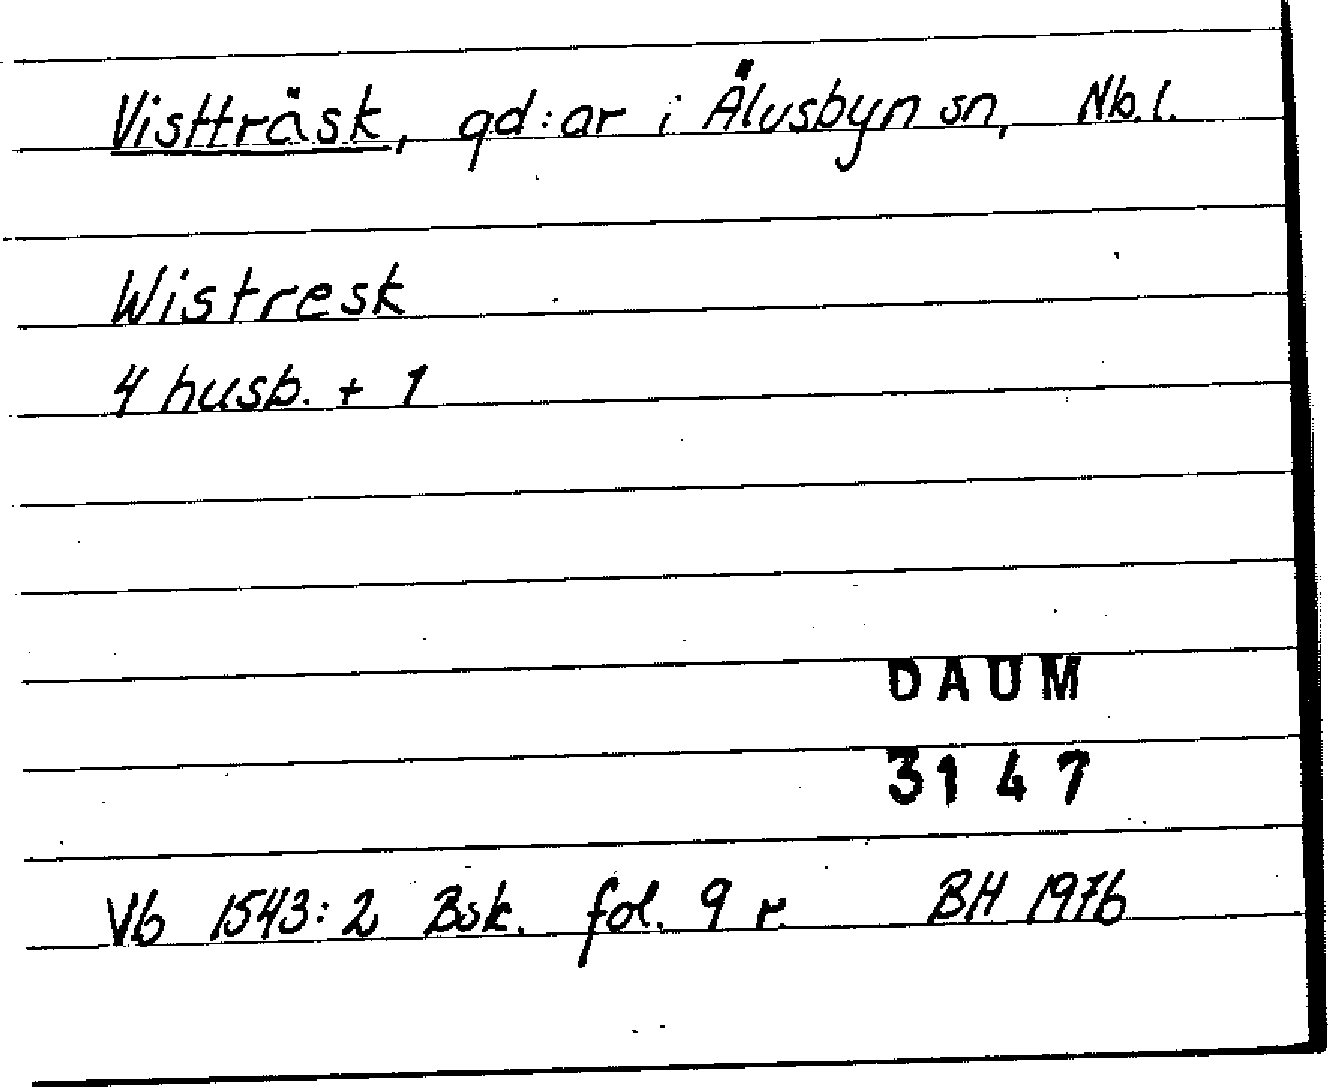 Vistträsk, gd:ar i Älvsbyn sn, Nb.l.
Wistresk
4 husb. + 1
DAUM
3147
Vb 1543:2 Bsk. fol. 9 r. BH 1976